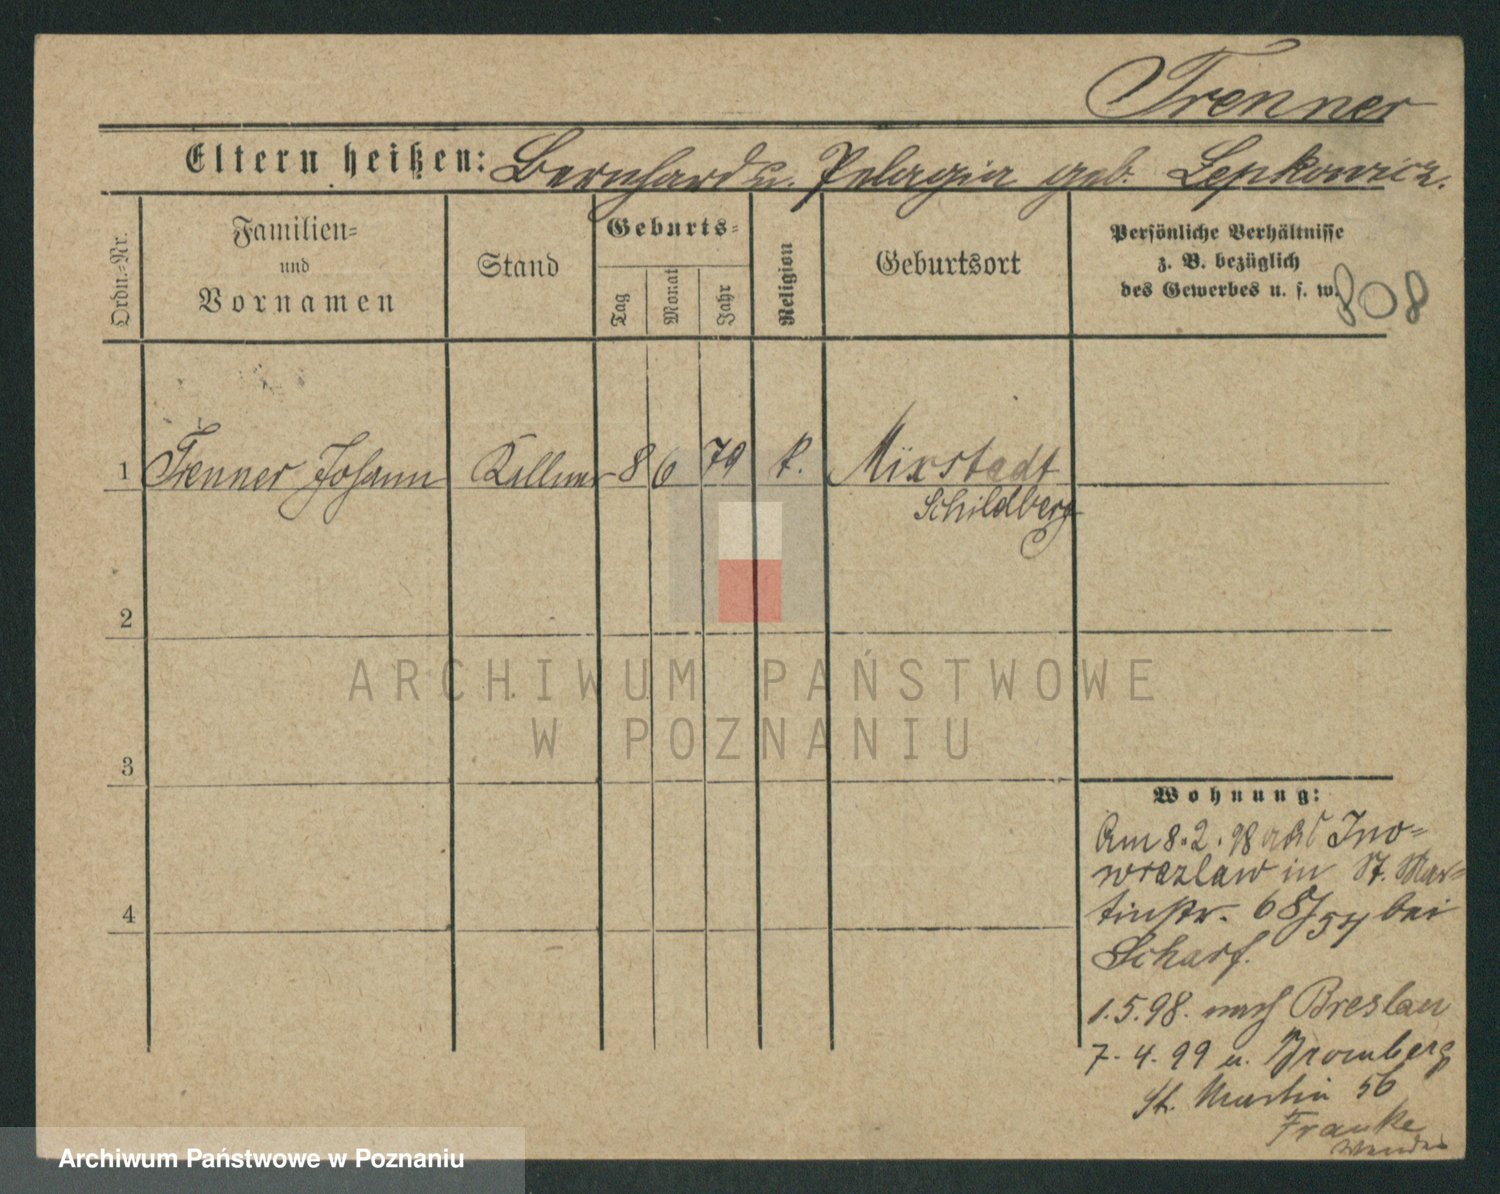 Trenner
Eltern heißen: Bernhard u. Pelagia geb. Lepkowicz.
Ordn.-Nr.
Familien-
und
Vornamen
Stand
Geburts-
Tag
Monat
Jahr
Religion
Geburtsort
Persönliche Verhältnisse
z. B. bezüglich
des Gewerbes u. s. w.
808
1 Trenner Johann Kellner 8 6 79 k. Mixstadt
Schildberg
2
3
4
ARCHIWUM PAŃSTWOWE
W POZNANIU
Wohnung:
Am 8.2.98 Ino-
wrazlaw in St. Mar-
tinstr. 68/54 bei
Scharf.
1.5.98. nach Breslau
7.4.99 u. Bromberg
St. Martin 56
Franke
Archiwum Państwowe w Poznaniu